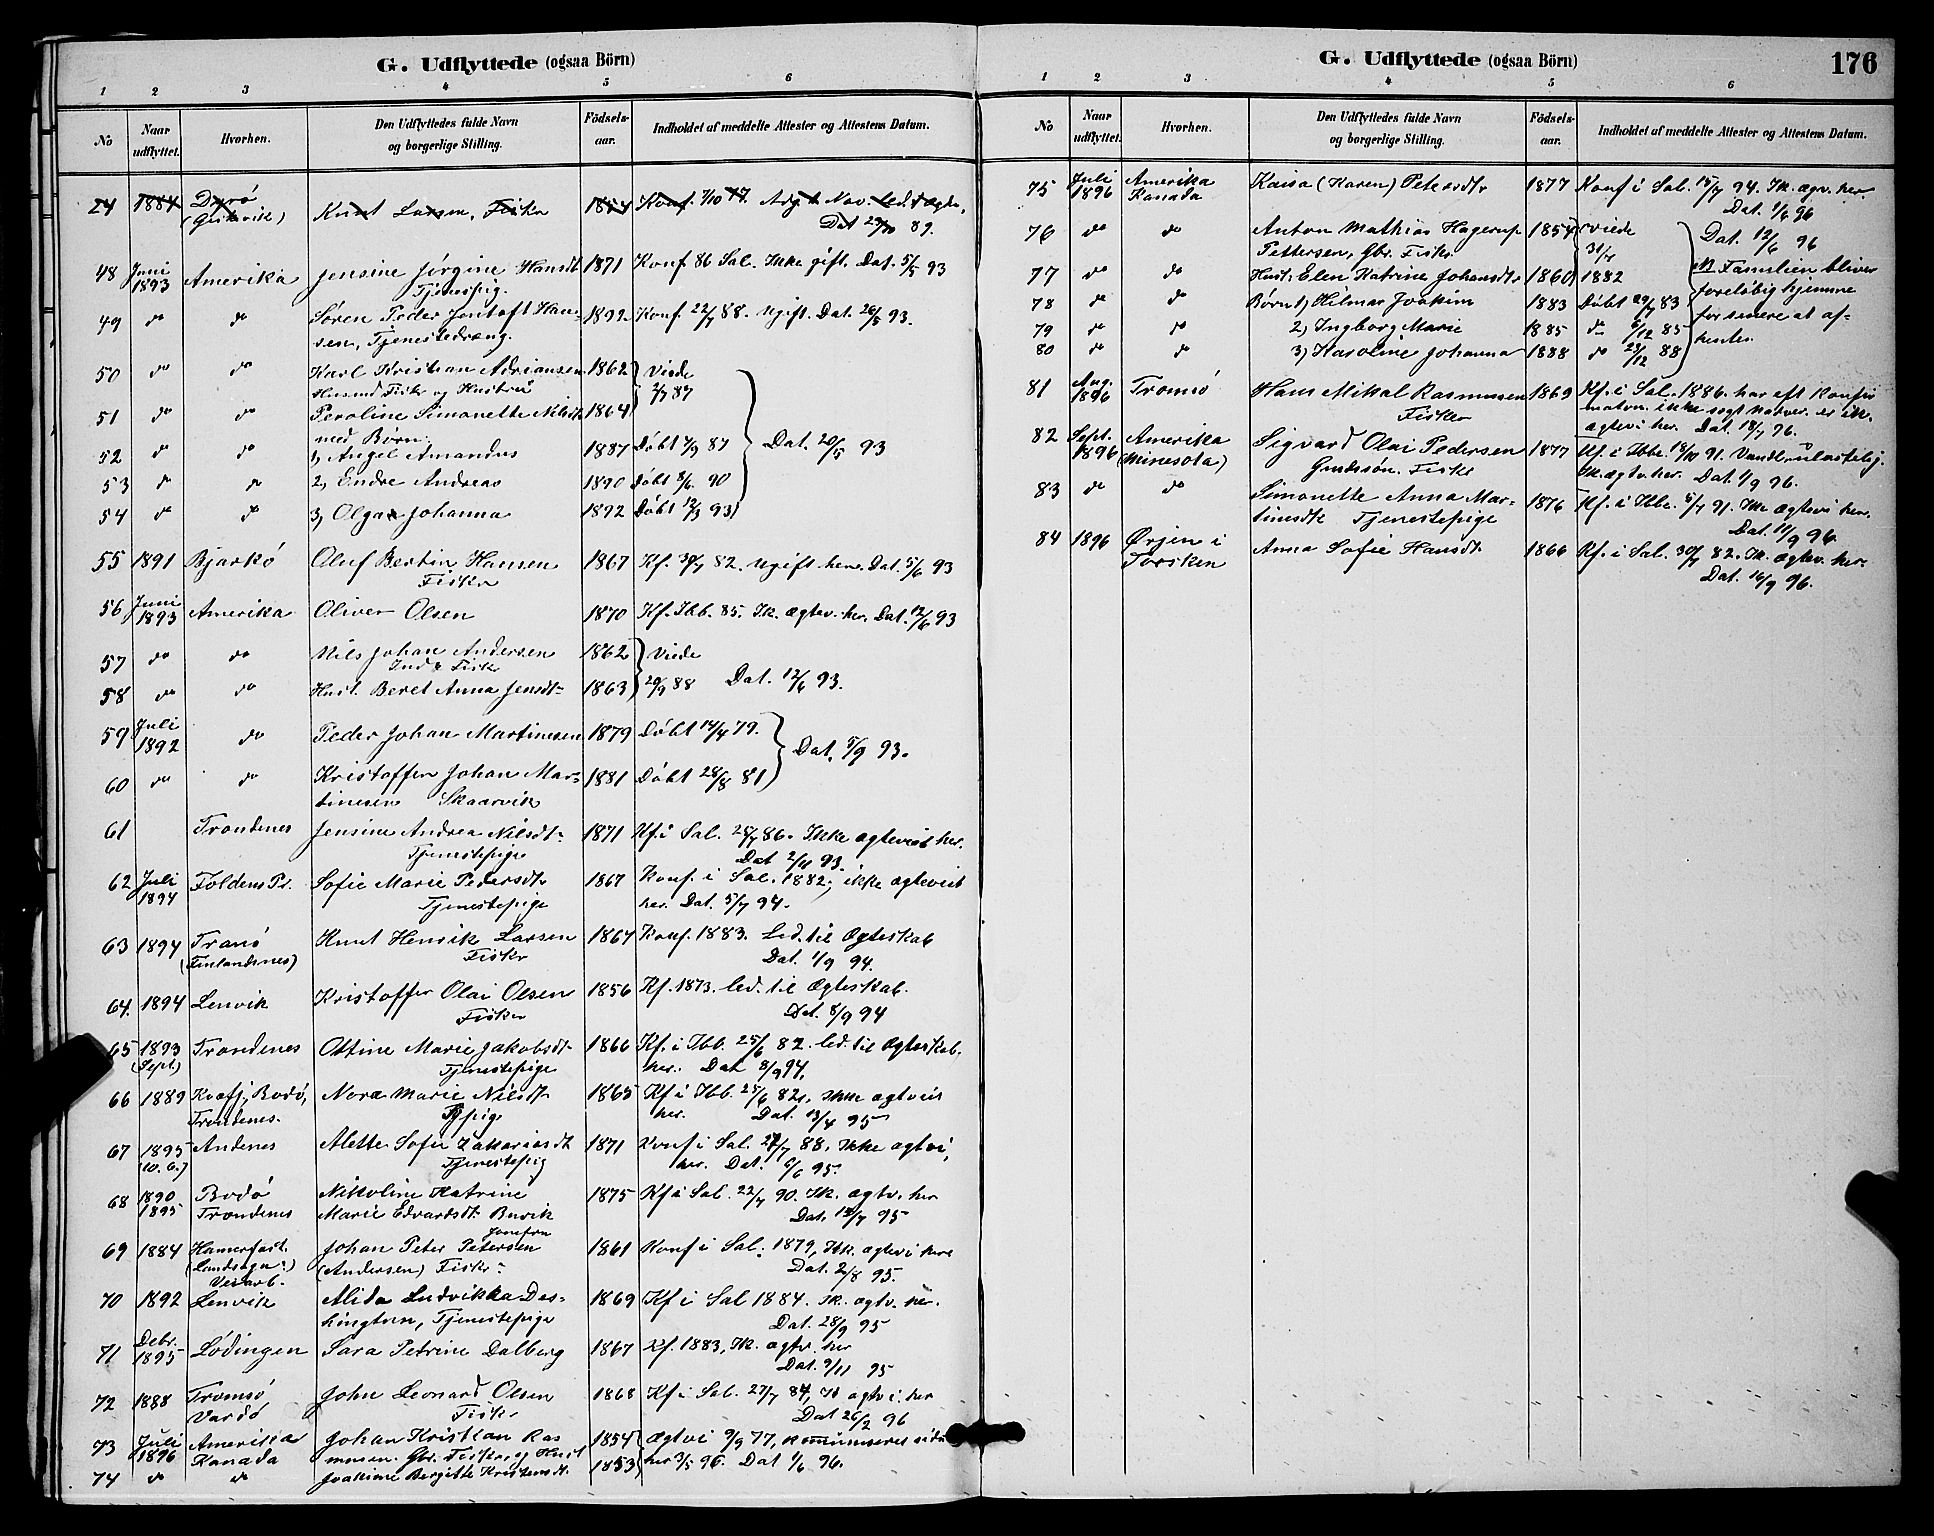 G. Udflyttede (ogsaa Börn)
1 2 3 4 5 6
No Naar udflyttet. Hvorhen. Den Udflyttedes fulde Navn og borgerlige Stilling. Födsels-aar. Indholdet af meddelte Attester og Attestens Datum.
24 1884 Dyrö Knut Larsen, Fisker 1854 Konf. 7/10 17.
Dat 29/10 89.
48 Juni 1893 Amerika Jensine Jörgine Hansdt 1871 Konf 86 Sal. Ikke gift. Dat. 5/5 93
Tjenestpig.
49 do do Sören Peder Jentoft Han- Konf. 22/7 88. Ugift. Dat. 26/5 93.
sen, Tjenestedreng.
50 do do Karl Kristian Adriansen 1862 Viede
Husmd Fisk og Hustru 2/7 87
51 do do Peroline Simonette Nilsdt 1864
med Børn:
52 do do 1) Angel Amandus 1887 Döbt 4/9 87 Dat. 20/5 93
53 do do 2) Endre Andreas 1890 Döbt 8/6 90
54 do do 3) Olga Johanna 1892 Döbt 12/3 93
55 1891 Bjarkö Oluf Bertin Hansen 1867 Kf. 30/7 82. Ugift here. Dat. 5/6 93
Fisker
56 Juni 1893 Amerika Oliver Olsen 1870 Kf. Ibb. 85. Ik. ægtev. her. Dat. 12/6 93
57 do do Nils Johan Andersen 1862 Viede
Ind & Fisk
58 do do Hust. Beret Anna Jensdt 1863 20/9 88 Dat. 12/6 93.
59 Juli 1892 do Peder Johan Martinesen 1879 Döbt 14/4 79.
Dat. 5/9 93.
60 do do Kristoffer Johan Mar- 1881 Döbt 28/8 81
tinesen Skaarvik
61 Trondenes Jensine Andrea Nilsdt 1871 Kf. i Sal. 25/7 86. Ikke ægteviet her.
Tjenestepige Dat 2/11 93.
62 Juli 1894 Foldens Pr. Sofie Marie Pedersdt 1867 Konf. i Sal. 1882, ikke ægteviet
Tjenestepige her. Dat. 5/7 94.
63 1894 Tranö Knut Henrik Larsen 1864 Konf. 1883. Led. til Ægteskab
(Finlandsnes) Fisker Dat. 1/9 94.
64. 1894 Lenvik Kristoffer Olai Olsen 1856 Kf. 1873. led. til Ægteskab.
Fisker Dat. 8/9 94
65 1893 Trondenes Ottine Marie Jakobsdt 1866 Kf. i Ibb. 25/6 82. led. til Ægteskab.
(Sept.) Tjenestepige her. Dat 8/9 94.
66 1889 Kvæfj, Bodö, Nora Marie Nilsdt 1865 Kf i Ibb. 25/6 82, ikke ægtvie
Trondenes. Tjpige her. Dat. 13/4 95
67 1895 Andenes Alette Sofie Zakariasdt 1871 Konf i Sal. 27/7 88, Ikke ægtvi,
Tjenestepig her. Dat. 6/6 95.
68 1890 Bodö Nikoline Katrine 1875 Kf i Sal. 22/7 90. Ik. ægtv. her
1895 Trondenes Marie Edvardsdt Buvik Dat. 12/7 95
Jomfru
69 1884 Hamerfest Johan Peter Petersen 1861 Konf i Sal. 1879, Ikk. ægtevi here
(Landsogn) (Andersen) Fisker Dat. 2/8 95.
70 1892 Lenvik Alida Ludvikka Des- 1869 Kf i Sal 1884. Ik. ægtv. her.
hington, Tjenestepige Dat. 28/9 95
71 Debr. 1895 Lödingen Sara Petrine Dalberg 1867 Kf. 1883, Ik. ægtv. her
Dat. 9/11 95
72 1888 Tromsö John Leonard Olsen 1868 Kf i Sal. 27/7 84, Ik ægtv i her
Vardö Fisk Dat 26/2 96
73 Juli 1896 Amerika Johan Kristian Ras 1854 Ægtvi 9/9 77,
Kanada mussen. Gbr. Fisker og Hust her 3/5 96. Dat 1/6 96.
74 do do Joakime Bergitte Kristensdt 1853
G. Udflyttede (ogsaa Börn) 176
1 2 3 4 5 6
No Naar udflyttet. Hvorhen. Den Udflyttedes fulde Navn og borgerlige Stilling. Födsels-aar. Indholdet af meddelte Attester og Attestens Datum.
75 Juli 1896 Amerika Kaisa (Karen) Petersdt 1877 Konf i Sal. 15/7 94. Ik. ægv. her
Kanada Dat. 1/6 96
76 do do Anton Mathias Hagerup 1854 viede Dat. 12/6 96
Pettersen, Gbr. Fisk
77 do do Hust. Elen Katrine Johansdt 1860 1882 Familien bliver
78 do do Børn 1) Hilmar Joakim 1883 Döbt 29/7 83 foreløbig hjemme
79 do do 2) Ingborg Marie 1885 do 6/12 85 for senere at af-
80 do do 3) Karoline Johanna 1888 do 23/12 88 hentes.
81 Aug. 1896 Tromsö Hans Mikal Rasmussen 1869 Kf. i Sal. 1886. har eft Konfir
Fisker mation. ikke søgt Natver. er ik.
ægtevi her. Dat. 18/7 96.
82 Sept. 1896 Amerika Sigvard Olai Pedersen 1877 Kf. i Ibbe. 18/10 91. Vandl. ulastelig.
(Minesota) Grdssøn. Fisk Ik. ægtv. her. Dat. 1/9 96.
83 do do Simonette Anna Mar- 1876 Kf. i Ibbe. 5/7 91. Ikke ægtevi her.
tinesdt Tjenestepige Dat. 11/9 96
84 1896 Ørjen i Anna Sofie Hansdt. 1866 Kf. i Sal. 30/7 82. Ik. ægtev. her.
Torsken Dat. 16/9 96.